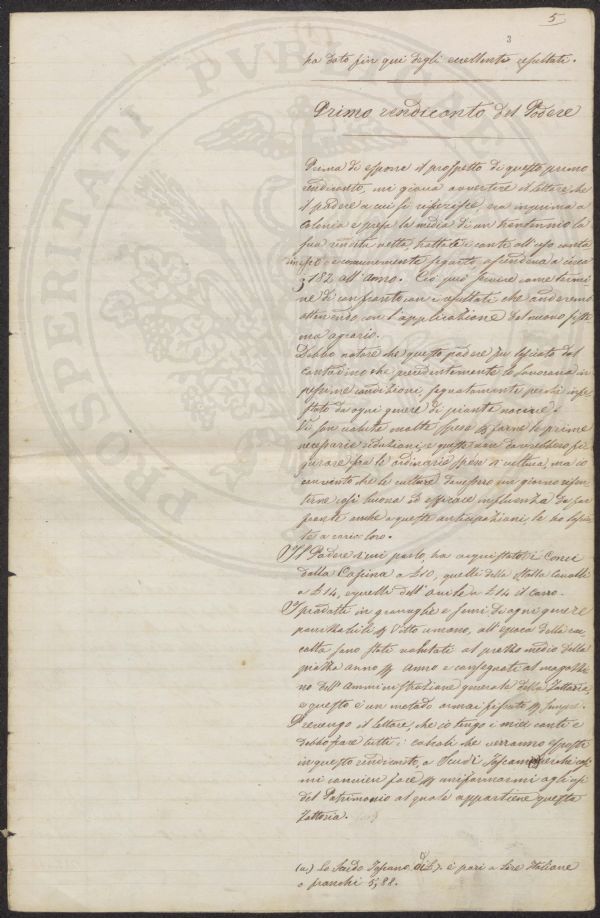 5
3
ha dato fin qui degli eccellenti resultati.
Primo rendiconto del Podere
Prima di esporre il prospetto di questo primo
rendiconto, mi giova avvertire il lettore, che
il podere a cui si riferisce, era in prima a
Colonia e presa la media di un trentennio la
sua rendita netta trattati i conti all'uso
e comunemente seguito, ascendeva a circa
182 all'Anno. Ciò può servire come termi
ne di confronto con i resultati che anderemo
ottenendo con l'applicazione del nuovo siste
ma agrario.
Debbo notare che questo podere fu lasciato dal
Contadino che precedentemente lo lavorava in
pessime condizioni, segnatamente perché infe
stato da ogni genere di piante nocive.
Vi son volute molte spese per farne le prime
necessarie riduzioni, e queste non dovrebbero fi
gurare fra le ordinarie spese di cultura, ma io
convinto che le culture dovessero un giorno risen
tirne così buona ed efficace influenza da far
fronte anche a queste anticipazioni, le ho lascia
te a carico loro.
Il Podere di cui parlo, ha acquistato i Conci
dalla Cascina a £10, quelli della Stalla Cavalli
a £14, e quelli dell'Ovile a £14 il carro.
I prodotti in granaglie e semi di ogni genere
panizzabili per Vitto umano, all'epoca della rac
colta sono stati valutati al prezzo medio della
piazza anno per anno e consegnati al magazzi
no dell'Amministrazione generale della Fattoria,
e questo è un metodo ormai fissato per sempre.
Prevengo il lettore, che io tengo i miei conti e
debbo fare tutti i calcoli che verranno esposti
in questo rendiconto, a Scudi Toscani (a) perché così
mi convien fare per uniformarmi agli usi
del Patrimonio al quale appartiene questa
Fattoria.
(a) Lo Scudo Toscano di £7. è pari a Lire Italiane
o franchi 5,88.
PROSPERITATI PUBLICAE